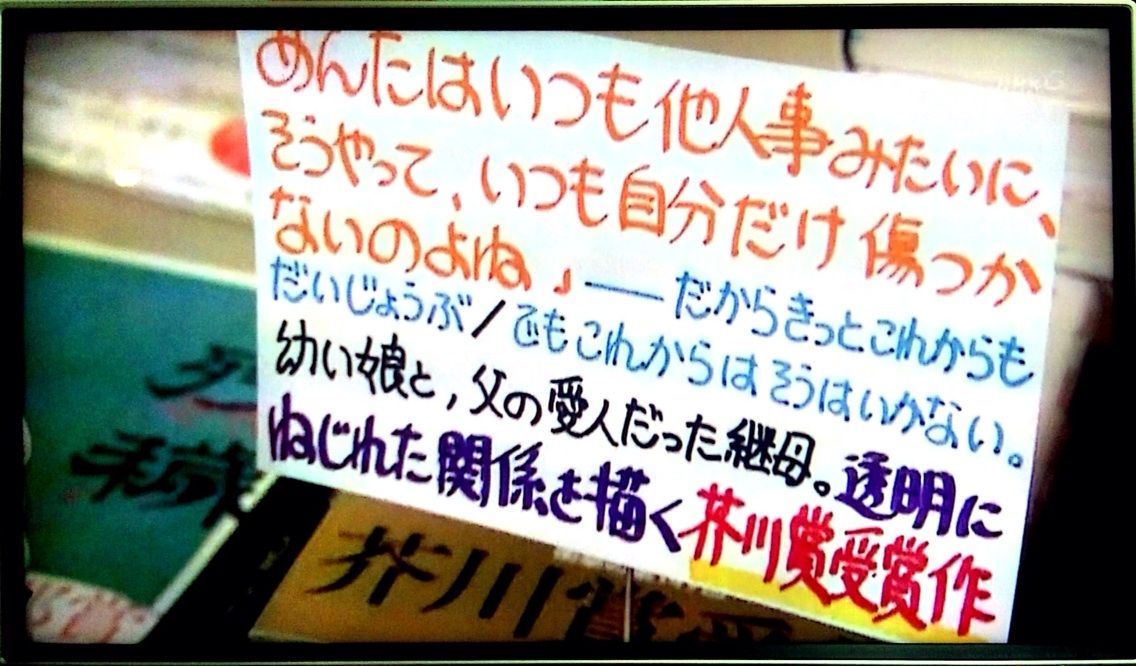 あんたはいつも他人事みたいに、
そうやって、いつも自分だけ傷つか
ないのよね」――だからきっとこれからも
だいじょうぶ/でもこれからはそうはいかない。
幼い娘と、父の愛人だった継母。透明に
ねじれた関係を描く芥川賞受賞作
芥川賞受